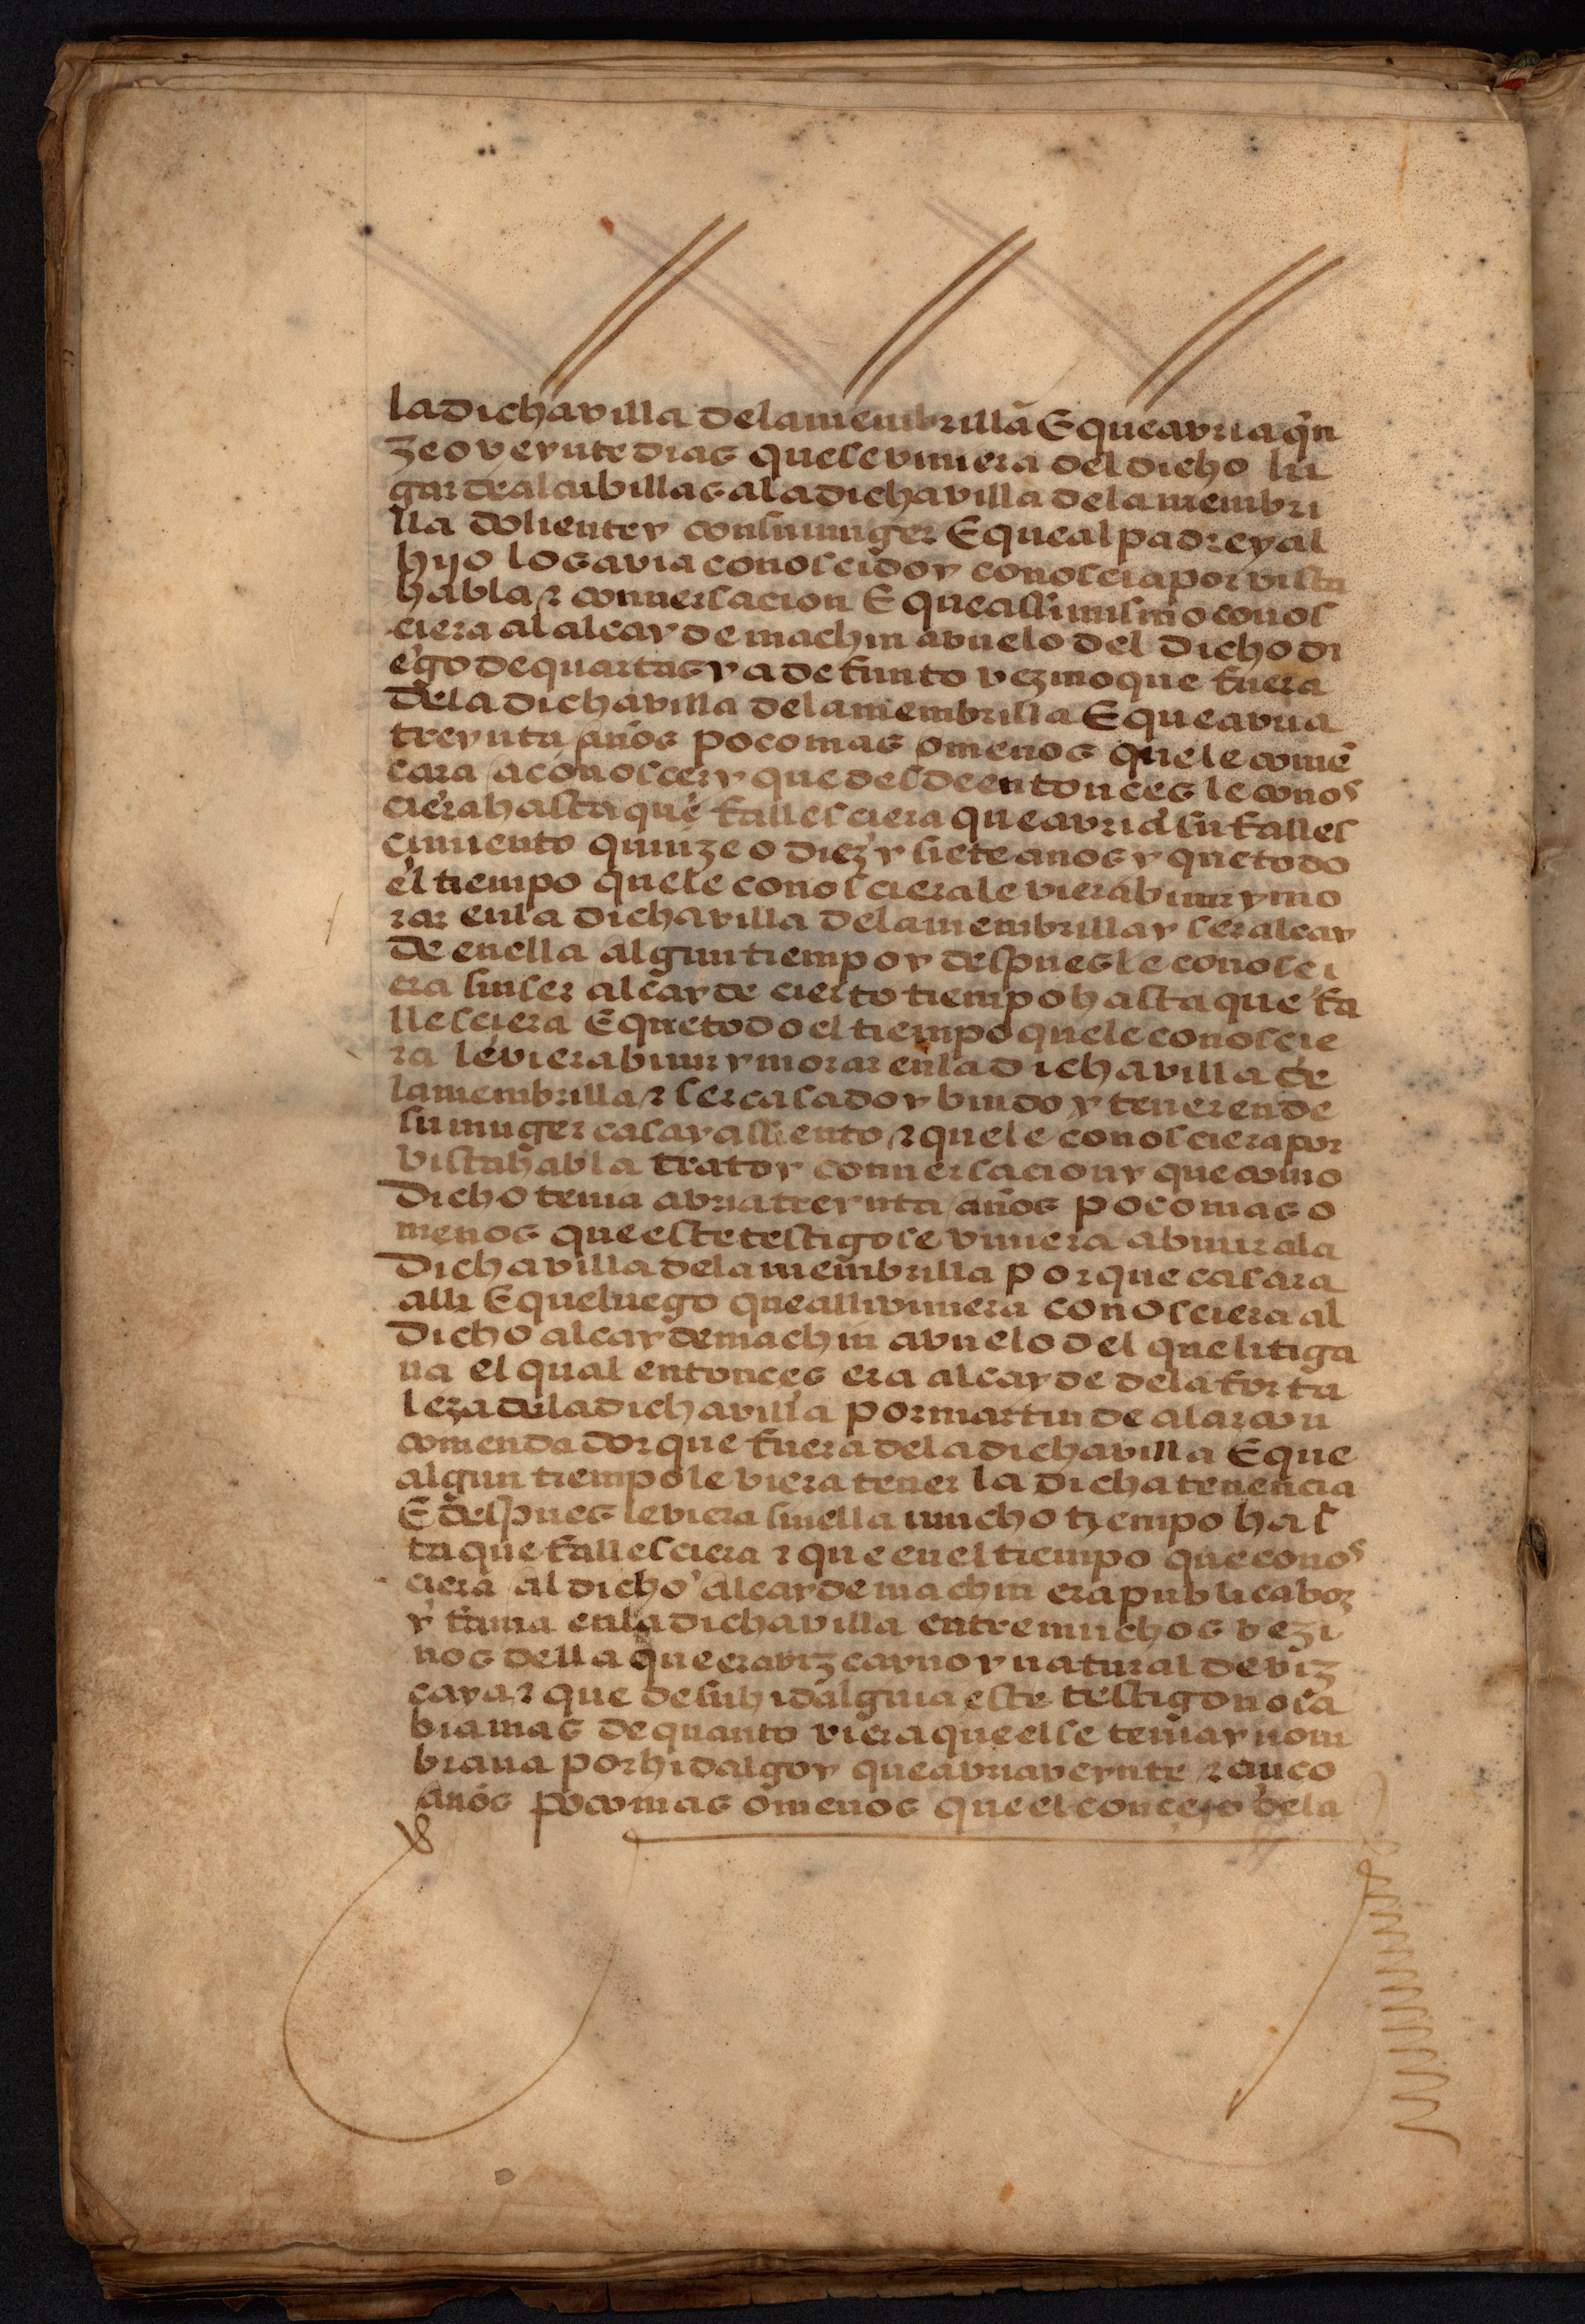 la dicha villa dela menbrilla E que avria q̃n
ze o veynte dias que se viniera del dicho lu
gar de alcubillas a la dicha villa dela menbri
lla doliente y con su muger E que al padre y al
hijo los avia conosçido y conosçia por vista
habla ⁊ conuersacion E que assimismo conos
ciera al alcayde machin avuelo del dicho di
ego de quartas ya defunto vezino que fuera
dela dicha villa dela menbrilla E que avria
treynta años poco mas o menos que le comẽ
cara a conoscer y que desde entonces le conos
ciera hasta que fallesciera que avria su falles
cimiento quinze o diez y siete anos y que todo
el tiempo que le conosciera le viera biuir y mo
rar en la dicha villa dela menbrilla y ser alcay
de en ella algun tiempo y despues le conosci
era sin ser alcayde cierto tiempo hasta que fa
llesciera E que todo el tiempo que le conoscie
ra le viera biuir y morar en la dicha villa de
la menbrilla ⁊ ser casado y biudo y tener ende
su muger casa y assiento ⁊ que le conosciera por
vista habla trato y conuersacion y que como
dicho tenia avria treynta años poco mas o
menos que este testigo se viniera a biuir a la
dicha villa dela menbrilla por que casara
alli E que luego que alli viniera conosciera al
dicho alcayde machin avuelo del que litiga
ua el qual entonces era alcayde dela forta
leza dela dicha villa por martin de alarcon
comendador que fuera dela dicha villa E que
algun tiempo le viera tener la dicha tenencia
E despues le viera sin ella mucho tiempo has
ta que fallesciera ⁊ que en el tiempo que conos
ciera al dicho alcayde machin era publica boz
y fama en la dicha villa entre muchos vezi
nos della que era vizcayno y natural de viz
caya ⁊ que de su hidalguia este testigo no sa
bia mas de quanto viera que el se tenia y nom
braua por hidalgo y que avria veynte ⁊ cinco
anos poco mas o menos que el concejo dela